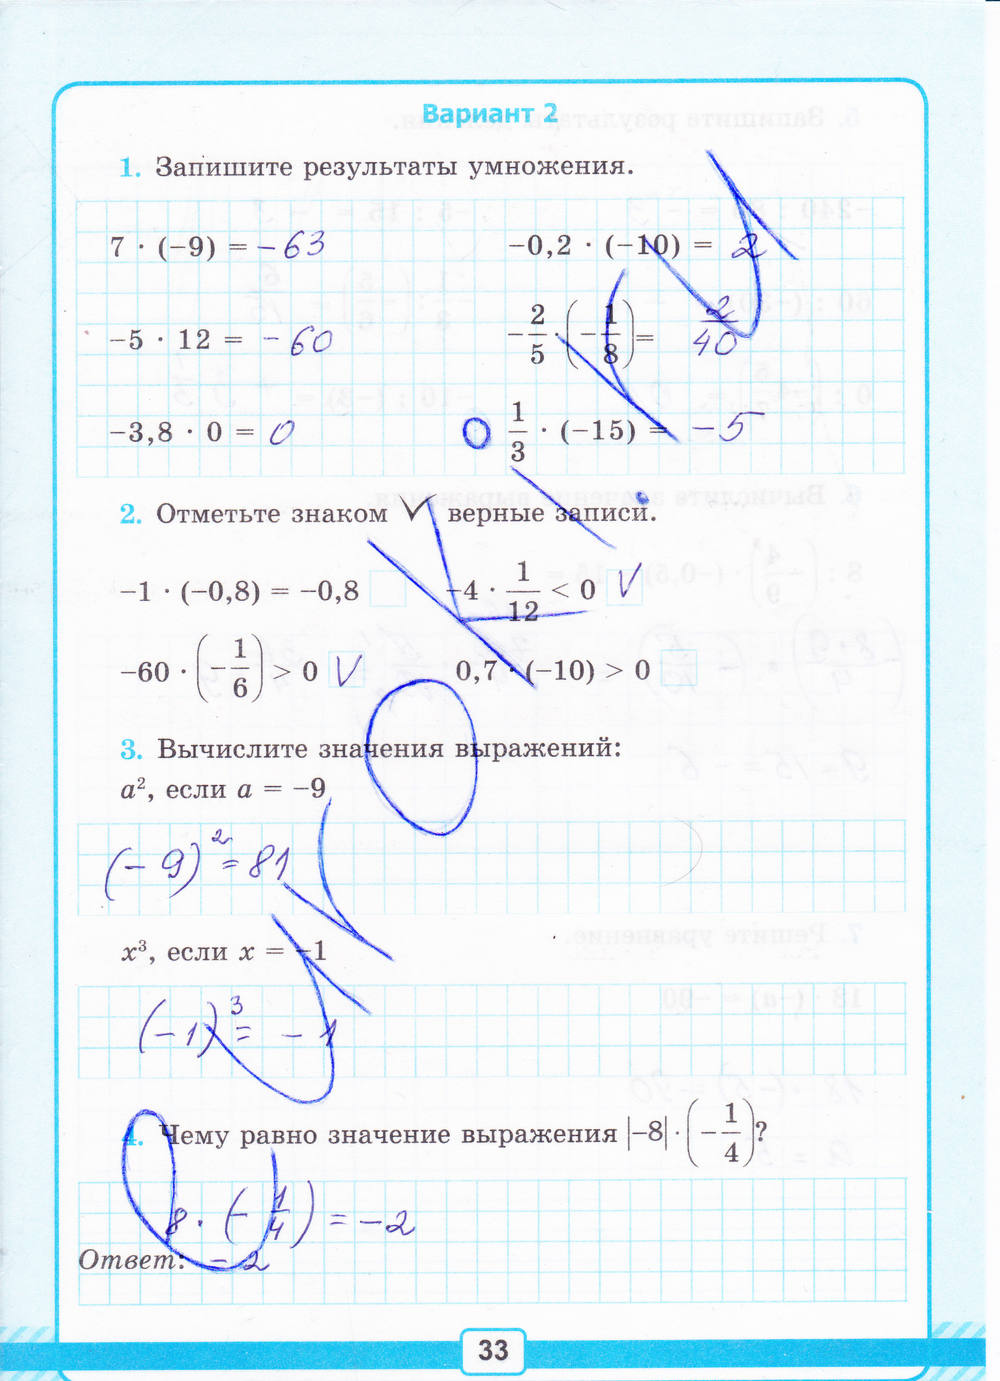 Вариант 2
1. Запишите результаты умножения.
7 · (−9) = −63
−0,2 · (−10) = 2
−5 · 12 = −60
−2/5 · (−1/8) = 2/40
−3,8 · 0 = 0
1/3 · (−15) = −5
2. Отметьте знаком √ верные записи.
−1 · (−0,8) = −0,8
−4 · 1/12 < 0 V
−60 · (−1/6) > 0 V
0,7 · (−10) > 0
3. Вычислите значения выражений:
a², если a = −9
(−9)² = 81
x³, если x = −1
(−1)³ = −1
4. Чему равно значение выражения |−8| · (−1/4)?
8 · (−1/4) = −2
Ответ: −2
33